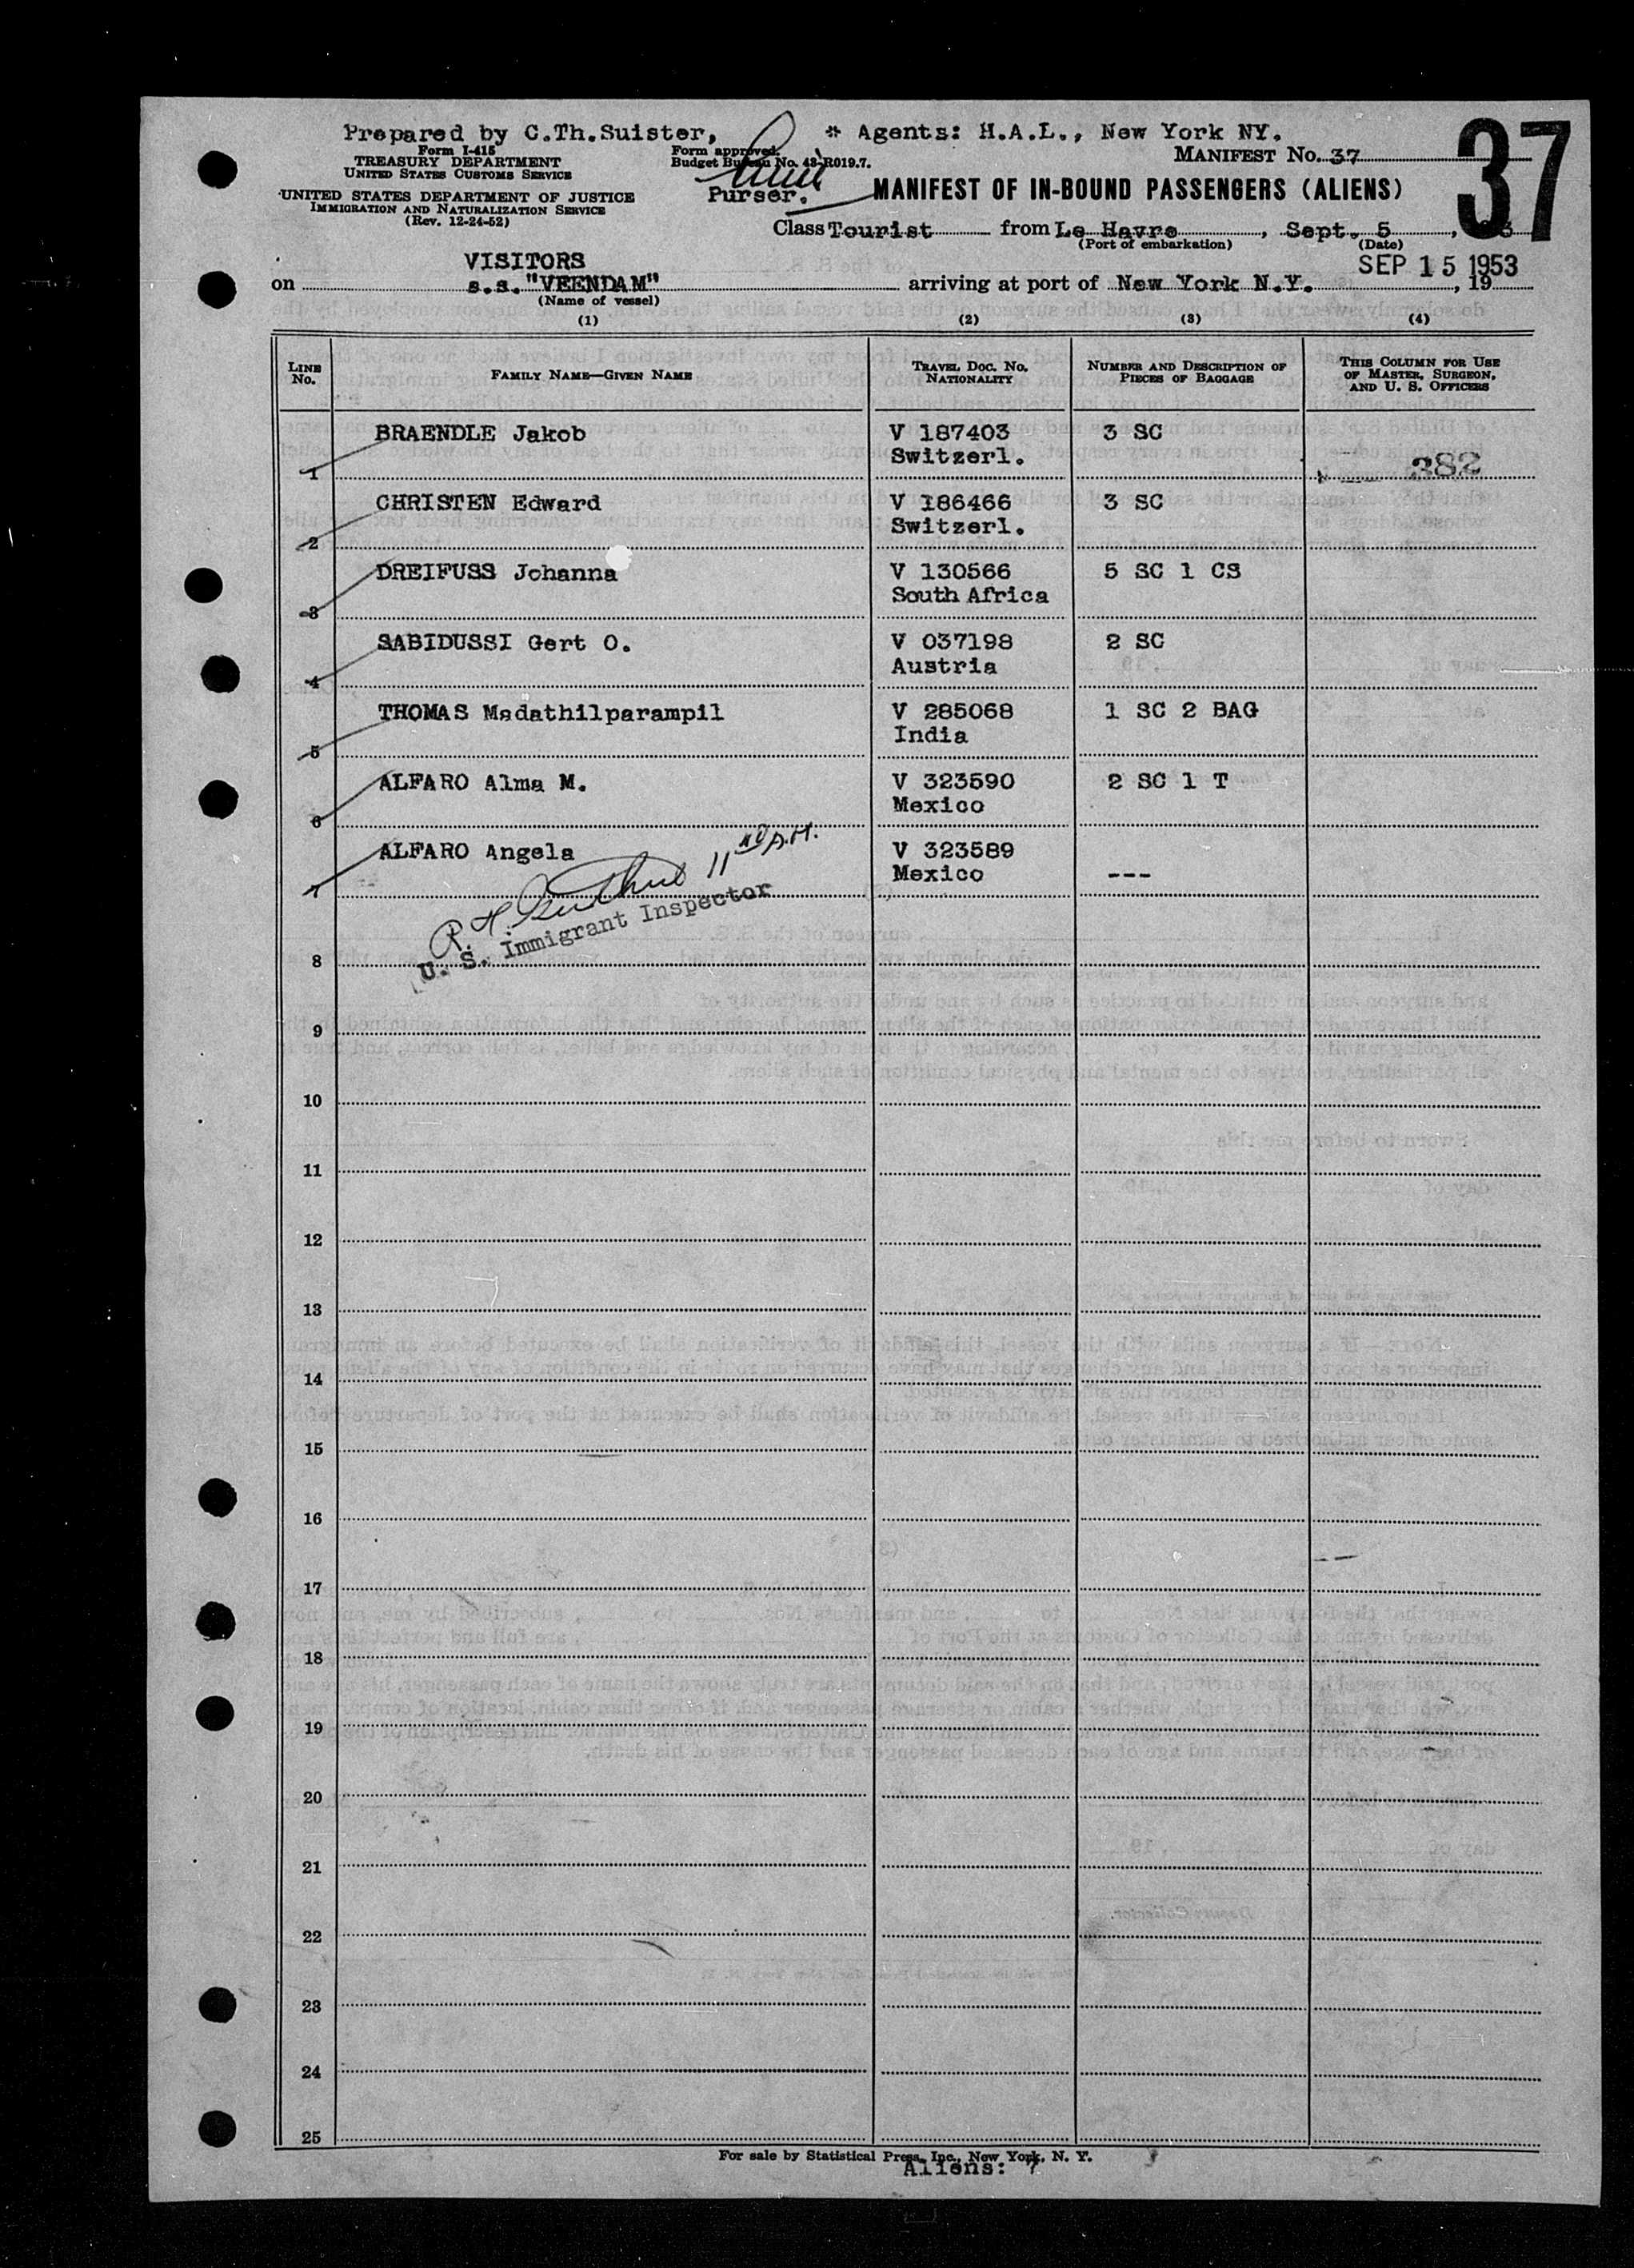 Prepared by C.Th.Suister, * Agents: H.A.L., New York NY.
Form I-415
TREASURY DEPARTMENT
UNITED STATES CUSTOMS SERVICE
UNITED STATES DEPARTMENT OF JUSTICE
IMMIGRATION AND NATURALIZATION SERVICE
(Rev. 12-24-52)
Form approved.
Budget Bureau No. 43-R019.7.
Purser.
MANIFEST No. 37
37
MANIFEST OF IN-BOUND PASSENGERS (ALIENS)
Class Tourist from Le Havre, Sept. 5,
(Port of embarkation) (Date)
VISITORS SEP 15 1953
on s.s."VEENDAM" arriving at port of New York N.Y. , 19
(Name of vessel)
(1) (2) (3) (4)
LINE No. FAMILY NAME—GIVEN NAME TRAVEL DOC. NO. NATIONALITY NUMBER AND DESCRIPTION OF PIECES OF BAGGAGE THIS COLUMN FOR USE OF MASTER, SURGEON, AND U. S. OFFICERS
BRAENDLE Jakob V 187403 3 SC
1 Switzerl. 382
CHRISTEN Edward V 186466 3 SC
2 Switzerl.
DREIFUSS Johanna V 130566 5 SC 1 CS
3 South Africa
SABIDUSSI Gert O. V 037198 2 SC
4 Austria
THOMAS Madathilparampil V 285068 1 SC 2 BAG
5 India
ALFARO Alma M. V 323590 2 SC 1 T
6 Mexico
ALFARO Angela V 323589
7 Mexico ---
U. S. Immigrant Inspector
8
9
10
11
12
13
14
15
16
17
18
19
20
21
22
23
24
25
For sale by Statistical Press, Inc., New York, N. Y.
Aliens: 7